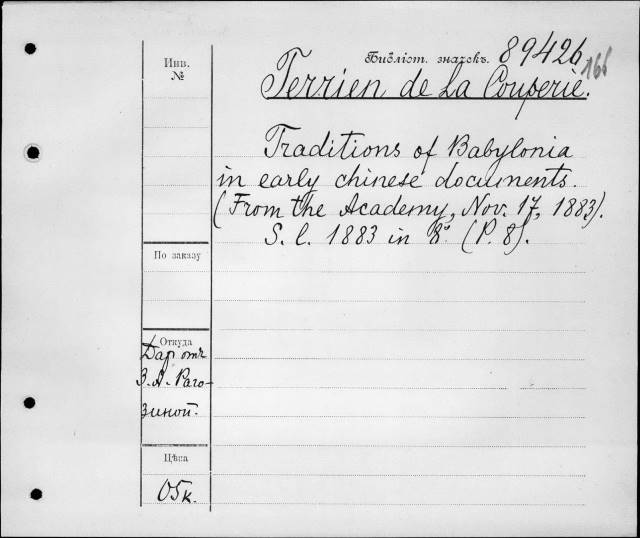 Инв.
№
Библіот. значекъ. 89426
166
Terrien de La Couperie.
Traditions of Babylonia
in early chinese documents.
(From the Academy, Nov. 17, 1883).
S. l. 1883 in 8º. (P. 8).
По заказу
Откуда
Даръ отъ
З. А. Раго-
зиной.
Цѣна
05к.